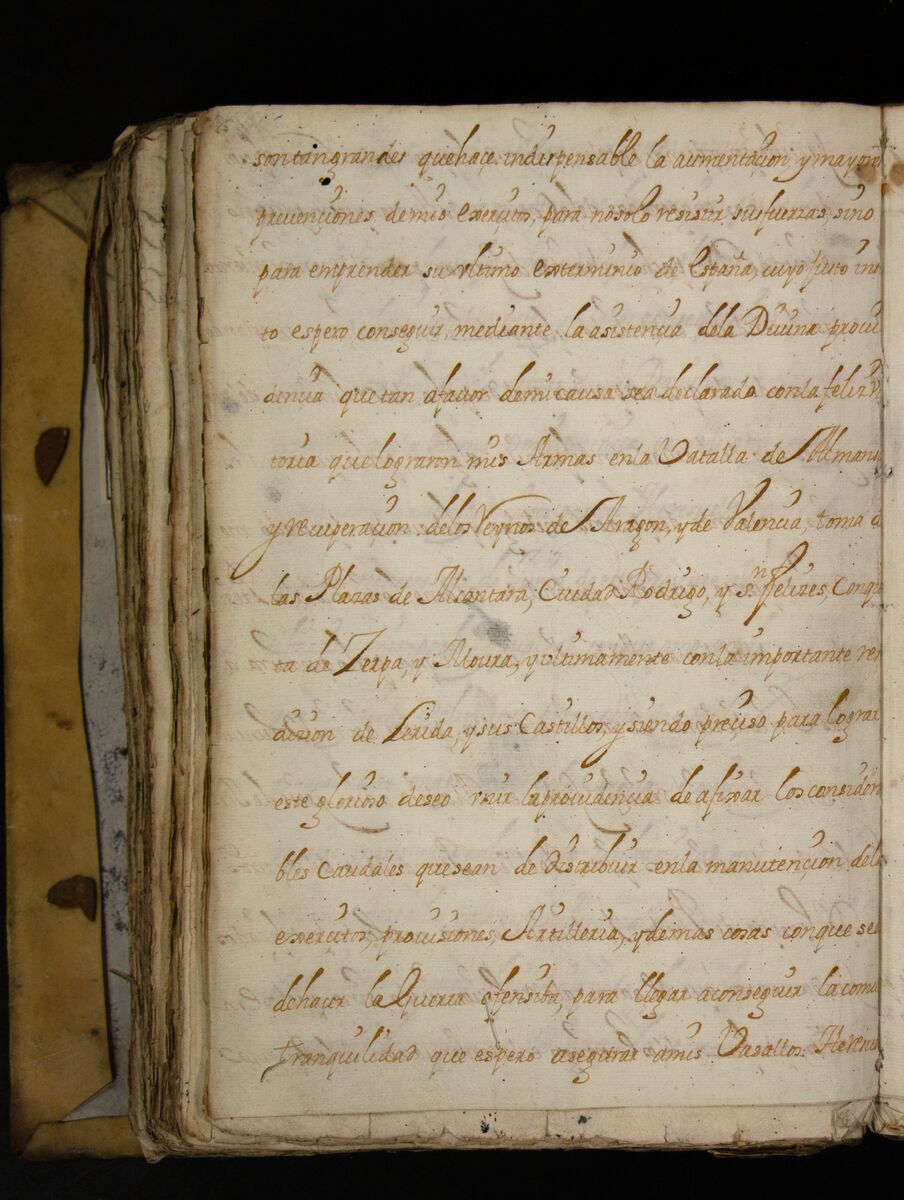 son tan grandes que haçe indispensable la aumentaçion y mayore
preuençiones demis exerçitos, para nosolo resistir susfuerzas, sino
para emprender su vltimo exterminio de España, cuyo justo int
to espero conseguir, mediante la asistencia dela Diuina proui
dençia que tan afauor demi causa sea declarado conla feliz Vi
toria que lograron mis Armas enla Vatalla de Almans
y recuperacion delos Reynos de Aragon, y de Valencia, toma d
las Plazas de Alcantara, Ciudad Rodrigo, y S.n felizes, Conqu
ta de Zerpa, y Moura, y vltimamente conla importante ren
diçion de Lerida, y sus Castillos, y siendo preçiso para lograr
este glorioso deseo vnir la prouidençia de afixar los consider
bles Caudales que sean de Distribuir enla manutençion delo
exerçitos, prouisiones, Artilleria, y demas cosas conque se a
de haçer la Guerra ofensiba, para llegar a conseguir la comu
tranquilidad que espero asegurar amis Vasallos: He resu